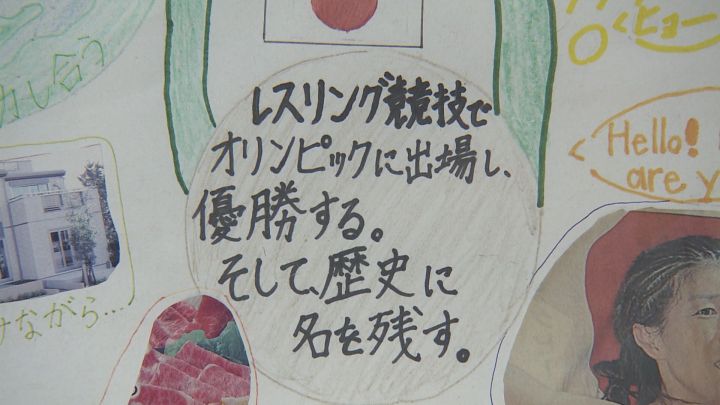 レスリング競技で
オリンピックに出場し、
優勝する。
そして、歴史に
名を残す。
し合う
ながら…
ヒョー
Hello!
are y